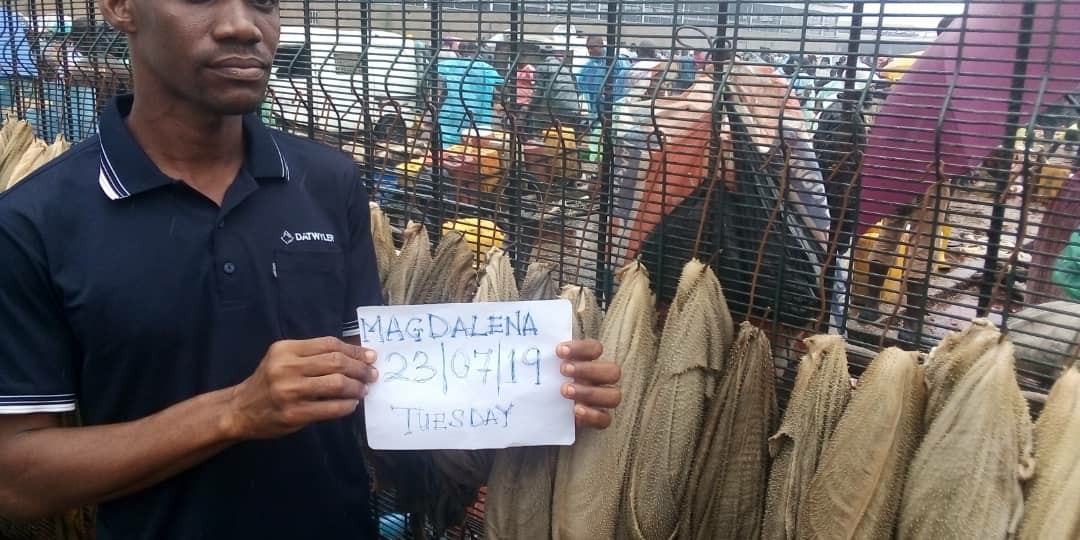 DATWYLER
MAGDALENA
23/07/19
TUESDAY